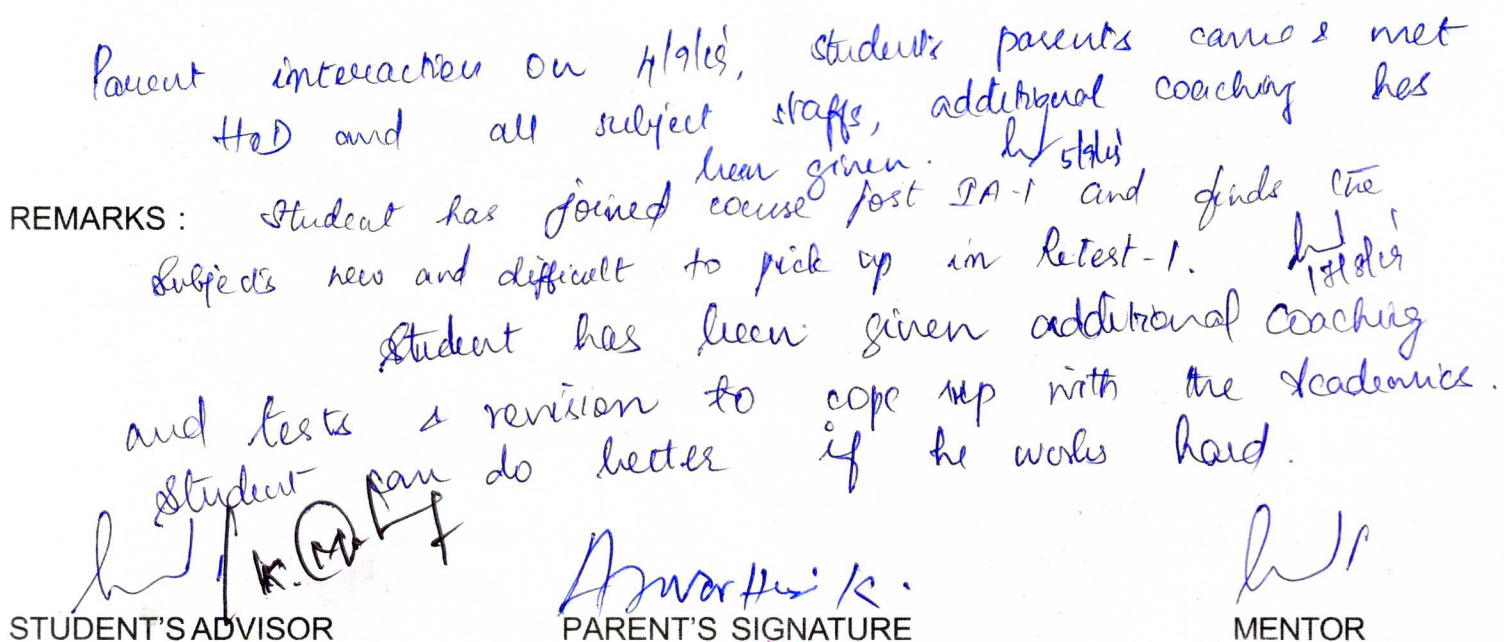 Parent interaction on 4/9/18, students parents came & met
HoD and all subject staffs, additional coaching has
been given. 5/9/18
REMARKS : Student has joined course post IA-1 and finds the
Subjects new and difficult to pick up in Retest-1.
Student has been given additional coaching
and tests & revision to cope up with the Academics.
Student can do better if he works hard.
K.
K.
STUDENT'S ADVISOR PARENT'S SIGNATURE MENTOR